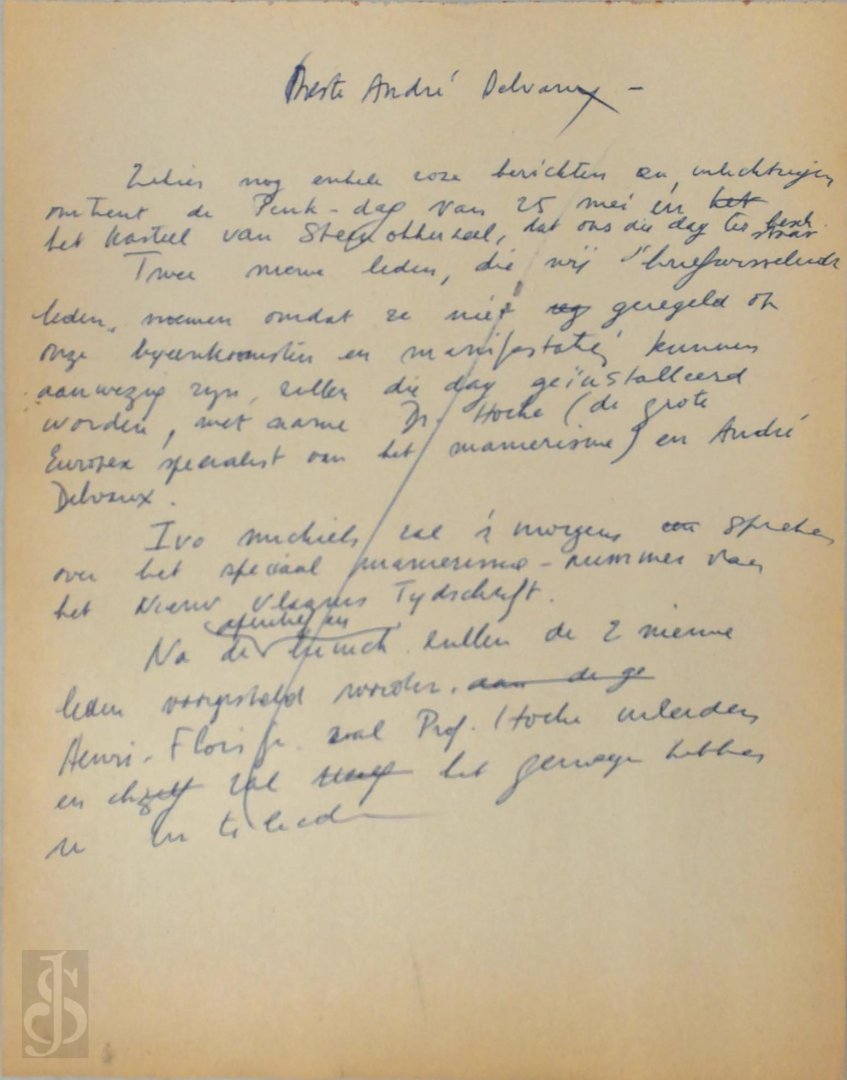 Beste André Delvaux -
nog enkele roze berichten en inlichtingen
omtrent de Pink-dag van 25 mei in het
het kasteel van Steenokkerzeel, dat ons die dag ter besch.
staat
Twee nieuwe leden, die wij "briefwisselende
leden" noemen omdat ze niet geregeld op
onze bijeenkomsten en manifestaties kunnen
aanwezig zijn, zullen die dag geïnstalleerd
worden, met name Dr. Hocke (de grote
Europea specialist van het manierisme) en André
Delvaux.
Ivo Michiels zal 's morgens spreken
over het speciaal manierisme-nummer van
het Nieuw Vlaams Tijdschrift.
aperitief en
Na de lunch zullen de 2 nieuwe
leden voorgesteld worden. aan de ge
Henri-Floris Jr. zal Prof. Hocke inleiden
en zal het genoegen hebben
u in te leiden